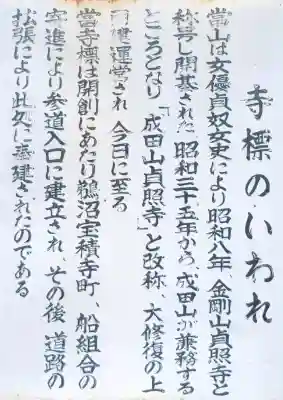 寺標のいわれ
當山は女優貞奴女史により昭和八年、金剛山貞照寺と
称号し開基された 昭和三十五年から、成田山が兼務する
ところとなり「成田山貞照寺」と改称、大修復の上
再建運営され 今日に至る
當寺標は開創にあたり鵜沼宝積寺町、船組合の
寄進により参道入口に建立され、その後 道路の
拡張により此処に奉建されたのである